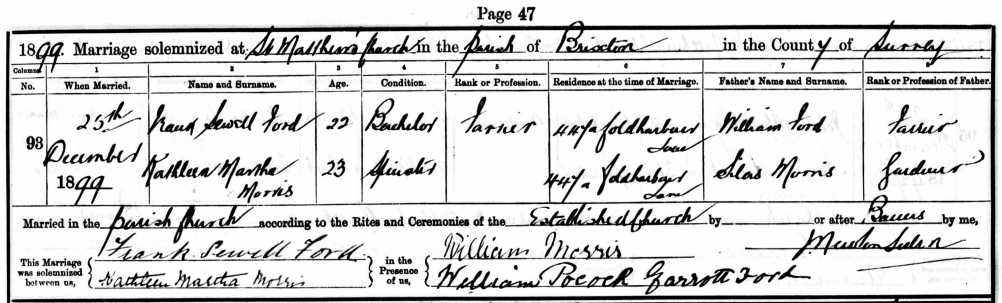 Page 47
1899. Marriage solemnized at St Matthew's Church in the Parish of Brixton in the County of Surrey
Columns 1 2 3 4 5 6 7 8
No. When Married. Name and Surname. Age. Condition. Rank or Profession. Residence at the time of Marriage. Father's Name and Surname. Rank or Profession of Father.
93 25th December 1899 Frank Sewell Ford 22 Bachelor Farrier 447a Coldharbour Lane William Ford Farrier
Kathleen Martha Morris 23 Spinster 447a Coldharbour Lane Silas Morris Gardener
Married in the Parish Church according to the Rites and Ceremonies of the Established Church by or after Banns by me,
This Marriage was solemnized between us, Frank Sewell Ford in the Presence of us, William Morris
Kathleen Martha Morris William Pocock Garrott Ford